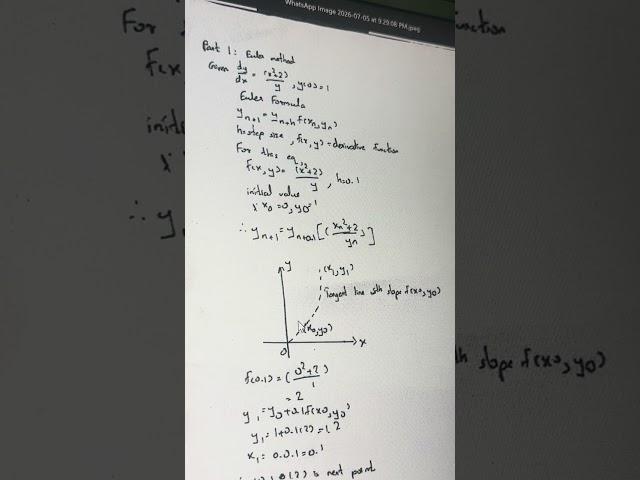 WhatsApp Image 2026-07-05 at 9.29.08 PM.jpeg
Part 1: Euler method
Given dy/dx = (x²+2)/y , y(0)=1
Euler Formula
y_{n+1} = y_{n+h} f(x_n, y_n)
h=step size, f(x, y)=derivative function
For this eq,
f(x, y)= (x²+2)/y , h=0.1
initial value
x_0=0, y_0=1
∴ y_{n+1} = y_{n+0.1}[(x_n²+2)/y_n]
y
(x_1, y_1)
Tangent line with slope f(x0, y0)
(x0, y0)
0
x
f(0.1) = (0²+2)/1
= 2
y_1 = y_0 + 0.1 f(x0, y0)
y_1 = 1+0.1(2) = 1.2
x_1 = 0.0.1 = 0.1
is next point